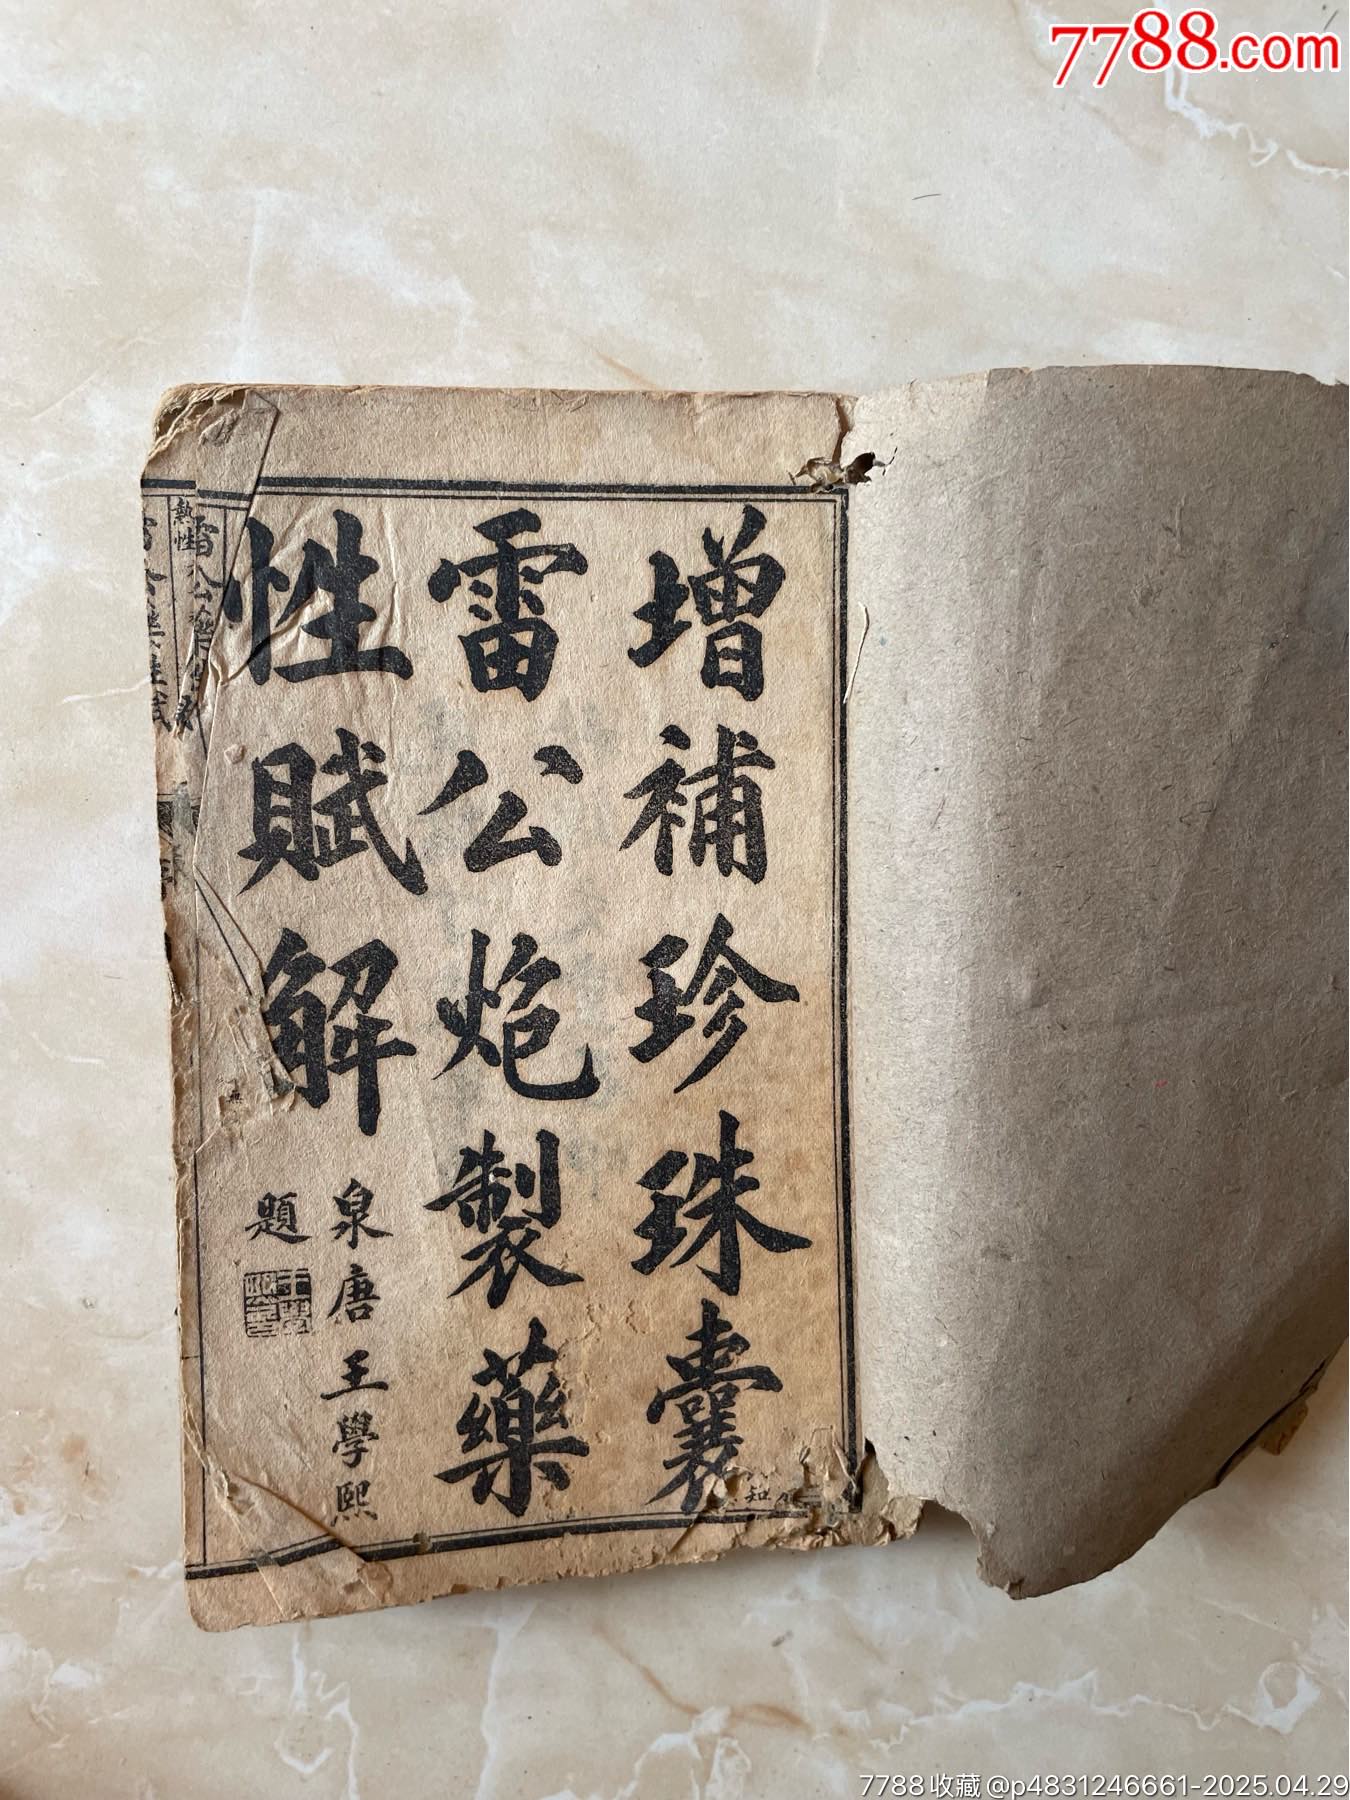 7788.com
增補珍珠囊
雷公炮製藥
性賦解
泉唐王學熙
題
王學熙
熱性
雷公藥性賦
知
無
7788收藏@p4831246661-2025.04.29